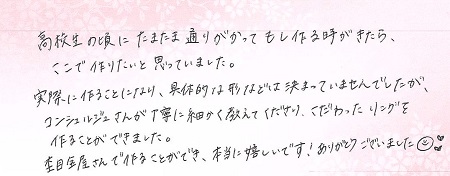 高校生の頃にたまたま通りがかってもし作る時がきたら、
ここで作りたいと思っていました。
実際に作ることになり、具体的な形などは決まっていませんでしたが、
コンシェルジュさんが丁寧に細かく教えてくださり、こだわったリングを
作ることができました。
杢目金屋さんで作ることができ、本当に嬉しいです!ありがとうございました